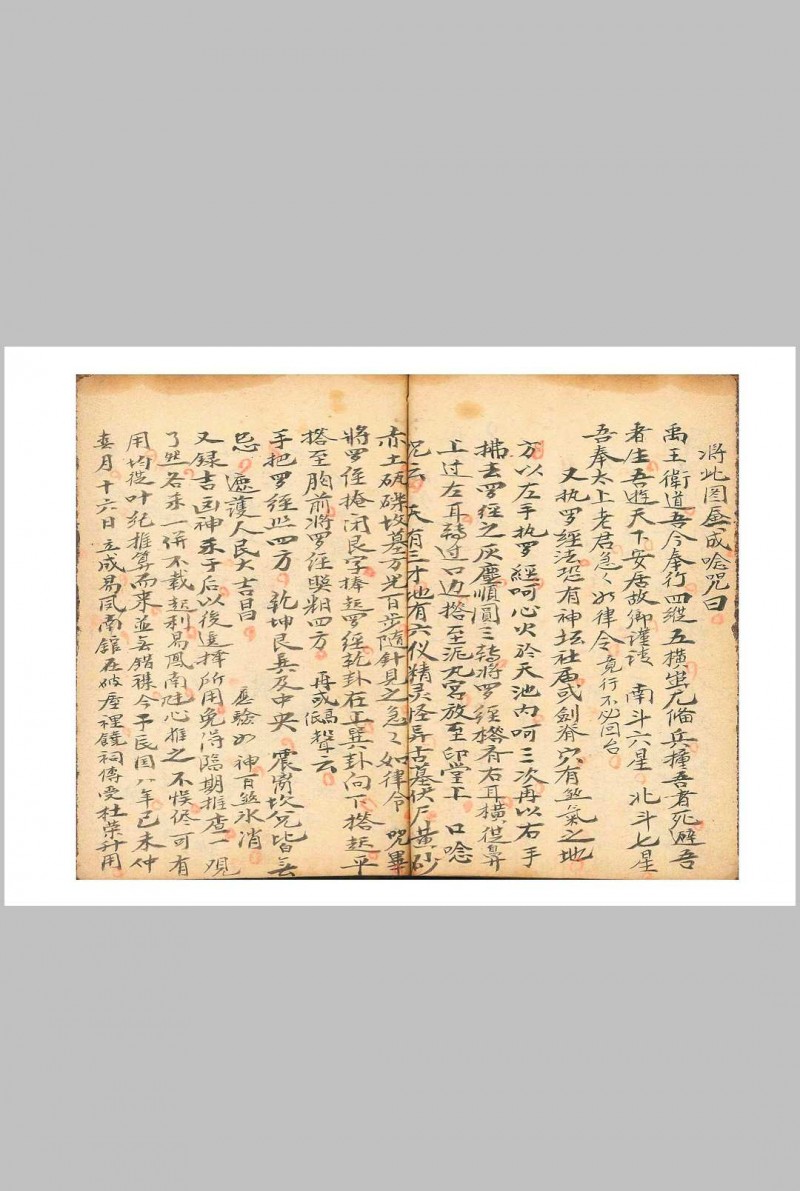 将此图画成唸咒曰
禹王衛道吾今奉行四縱五横蚩尤俻兵撞吾者死避吾
者生吾遊天下安居故鄉謹請 南斗六星 北斗七星
吾奉太上老君急々如律令竟行不必回台
又执罗經法恐有神坛社庙或劍脊穴有煞氣之地
方以左手执罗經呵心火於天池内呵三次再以右手
拂去罗經之灰塵順圓三转將罗經搭右右耳横從鼻
上过左耳轉过口边搭至泥丸宮放至印堂上 口唸
咒云 天有三才地有六仪精灵怪异古墓伏尸黄砂
赤土破礫坟墓方光百步隨針見之急々如律令 咒畢
將罗經掩闭艮字捧起罗經乾卦在上巽卦向下搭起平
搭至胸前將罗經照四方 再或低聲云
手把罗經照四方 乾坤艮巽及中央 震离坎兑皆無
忌 應護人民大吉昌 應驗如神百煞氷消
又録吉凶神杀于后以後選擇所用免得臨期推查一覌
了然各杀一併不載起利易鳳南陡心推之不悮侭可有
用均從叶紀推算而來並無錯襍今予民国八年己未仲
春月十六日立成易凤南館在破屋裡饒祠傳受杜荣升用